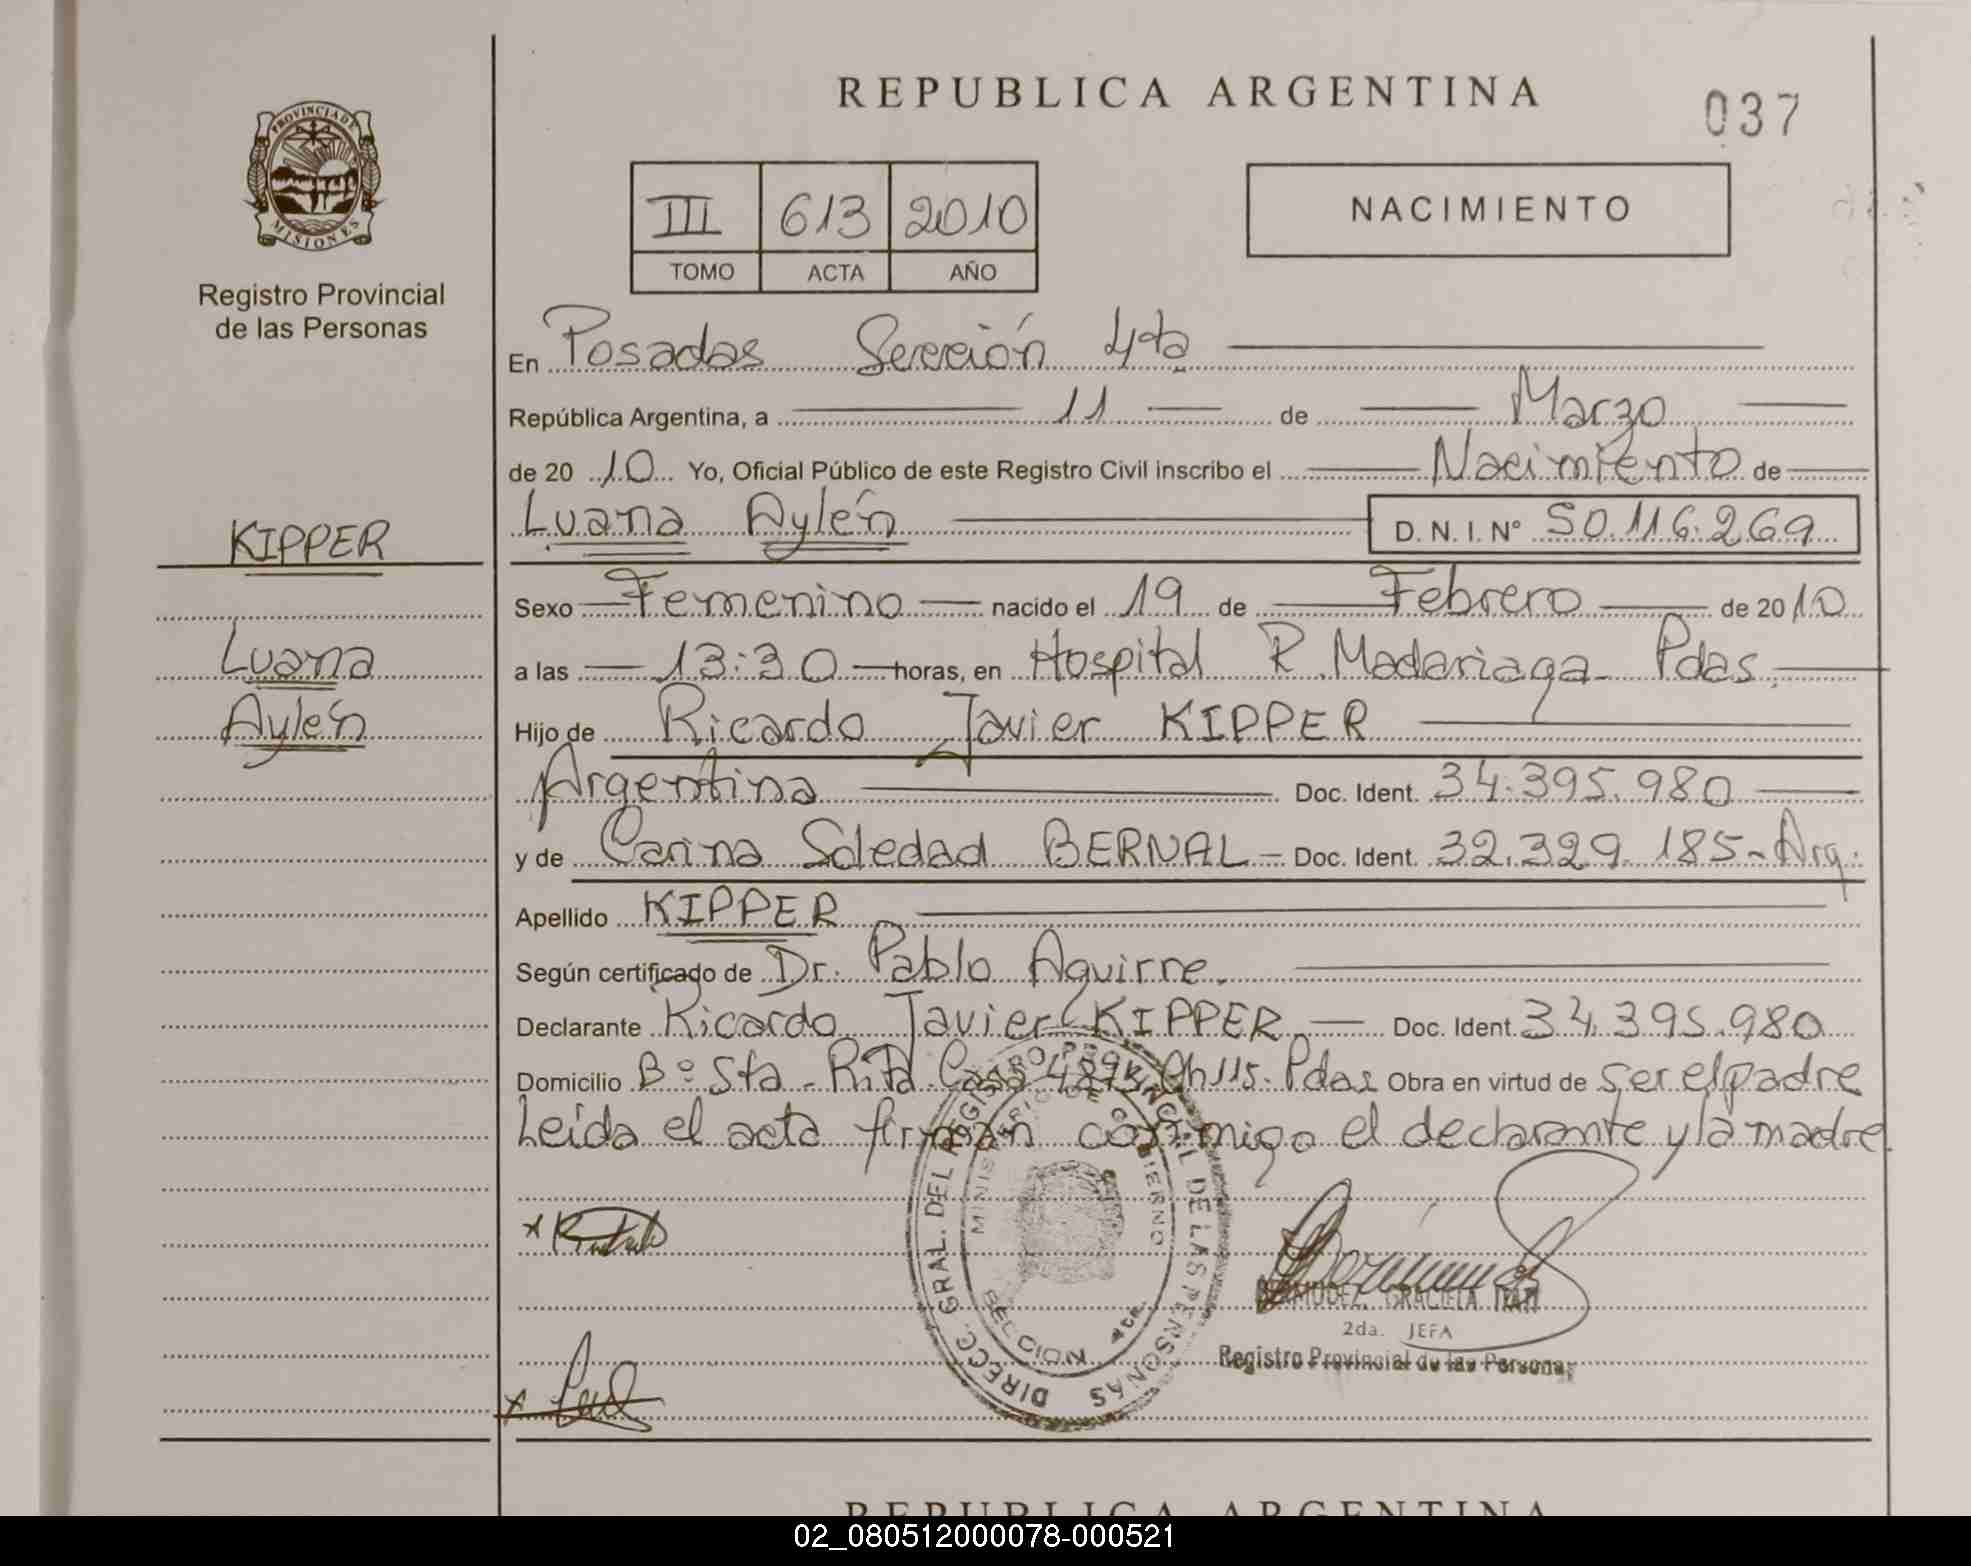 REPUBLICA ARGENTINA
037
PROVINCIA DE MISIONES
Registro Provincial
de las Personas
III 613 2010
TOMO ACTA AÑO
NACIMIENTO
En Posadas Sección 4ta
República Argentina, a 11 de Marzo
de 2010 Yo, Oficial Público de este Registro Civil inscribo el Nacimiento de
Luana Aylén D. N. I. Nº 50.116.269
KIPPER
Luana
Aylén
Sexo Femenino nacido el 19 de Febrero de 2010
a las 13:30 horas, en Hospital R. Madariaga - Pdas.
Hijo de Ricardo Javier KIPPER
Argentina Doc. Ident. 34.395.980
y de Carina Soledad BERNAL - Doc. Ident. 32.329.185 - Arg.
Apellido KIPPER
Según certificado de Dr. Pablo Aguirre.
Declarante Ricardo Javier KIPPER. Doc. Ident. 34.395.980
Domicilio Bº Sta. Rita Casa Ch 115. Pdas Obra en virtud de ser el padre
Leída el acta firman conmigo el declarante y la madre.
DIRECC. GRAL. DEL REGISTRO PROVINCIAL DE LAS PERSONAS
MINISTERIO DE GOBIERNO
SECCION 4ta.
BERMUDEZ, GRACIELA ITATI
2da. JEFA
Registro Provincial de las Personas
REPUBLICA ARGENTINA
02_080512000078-000521